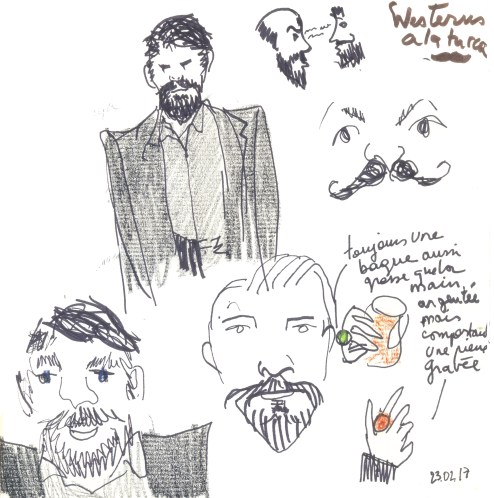 Westerns
a la turca
toujours une
bague aussi
grosse que la
main,
argentée
mais
comportant
une pierre
gravée
23.02.17